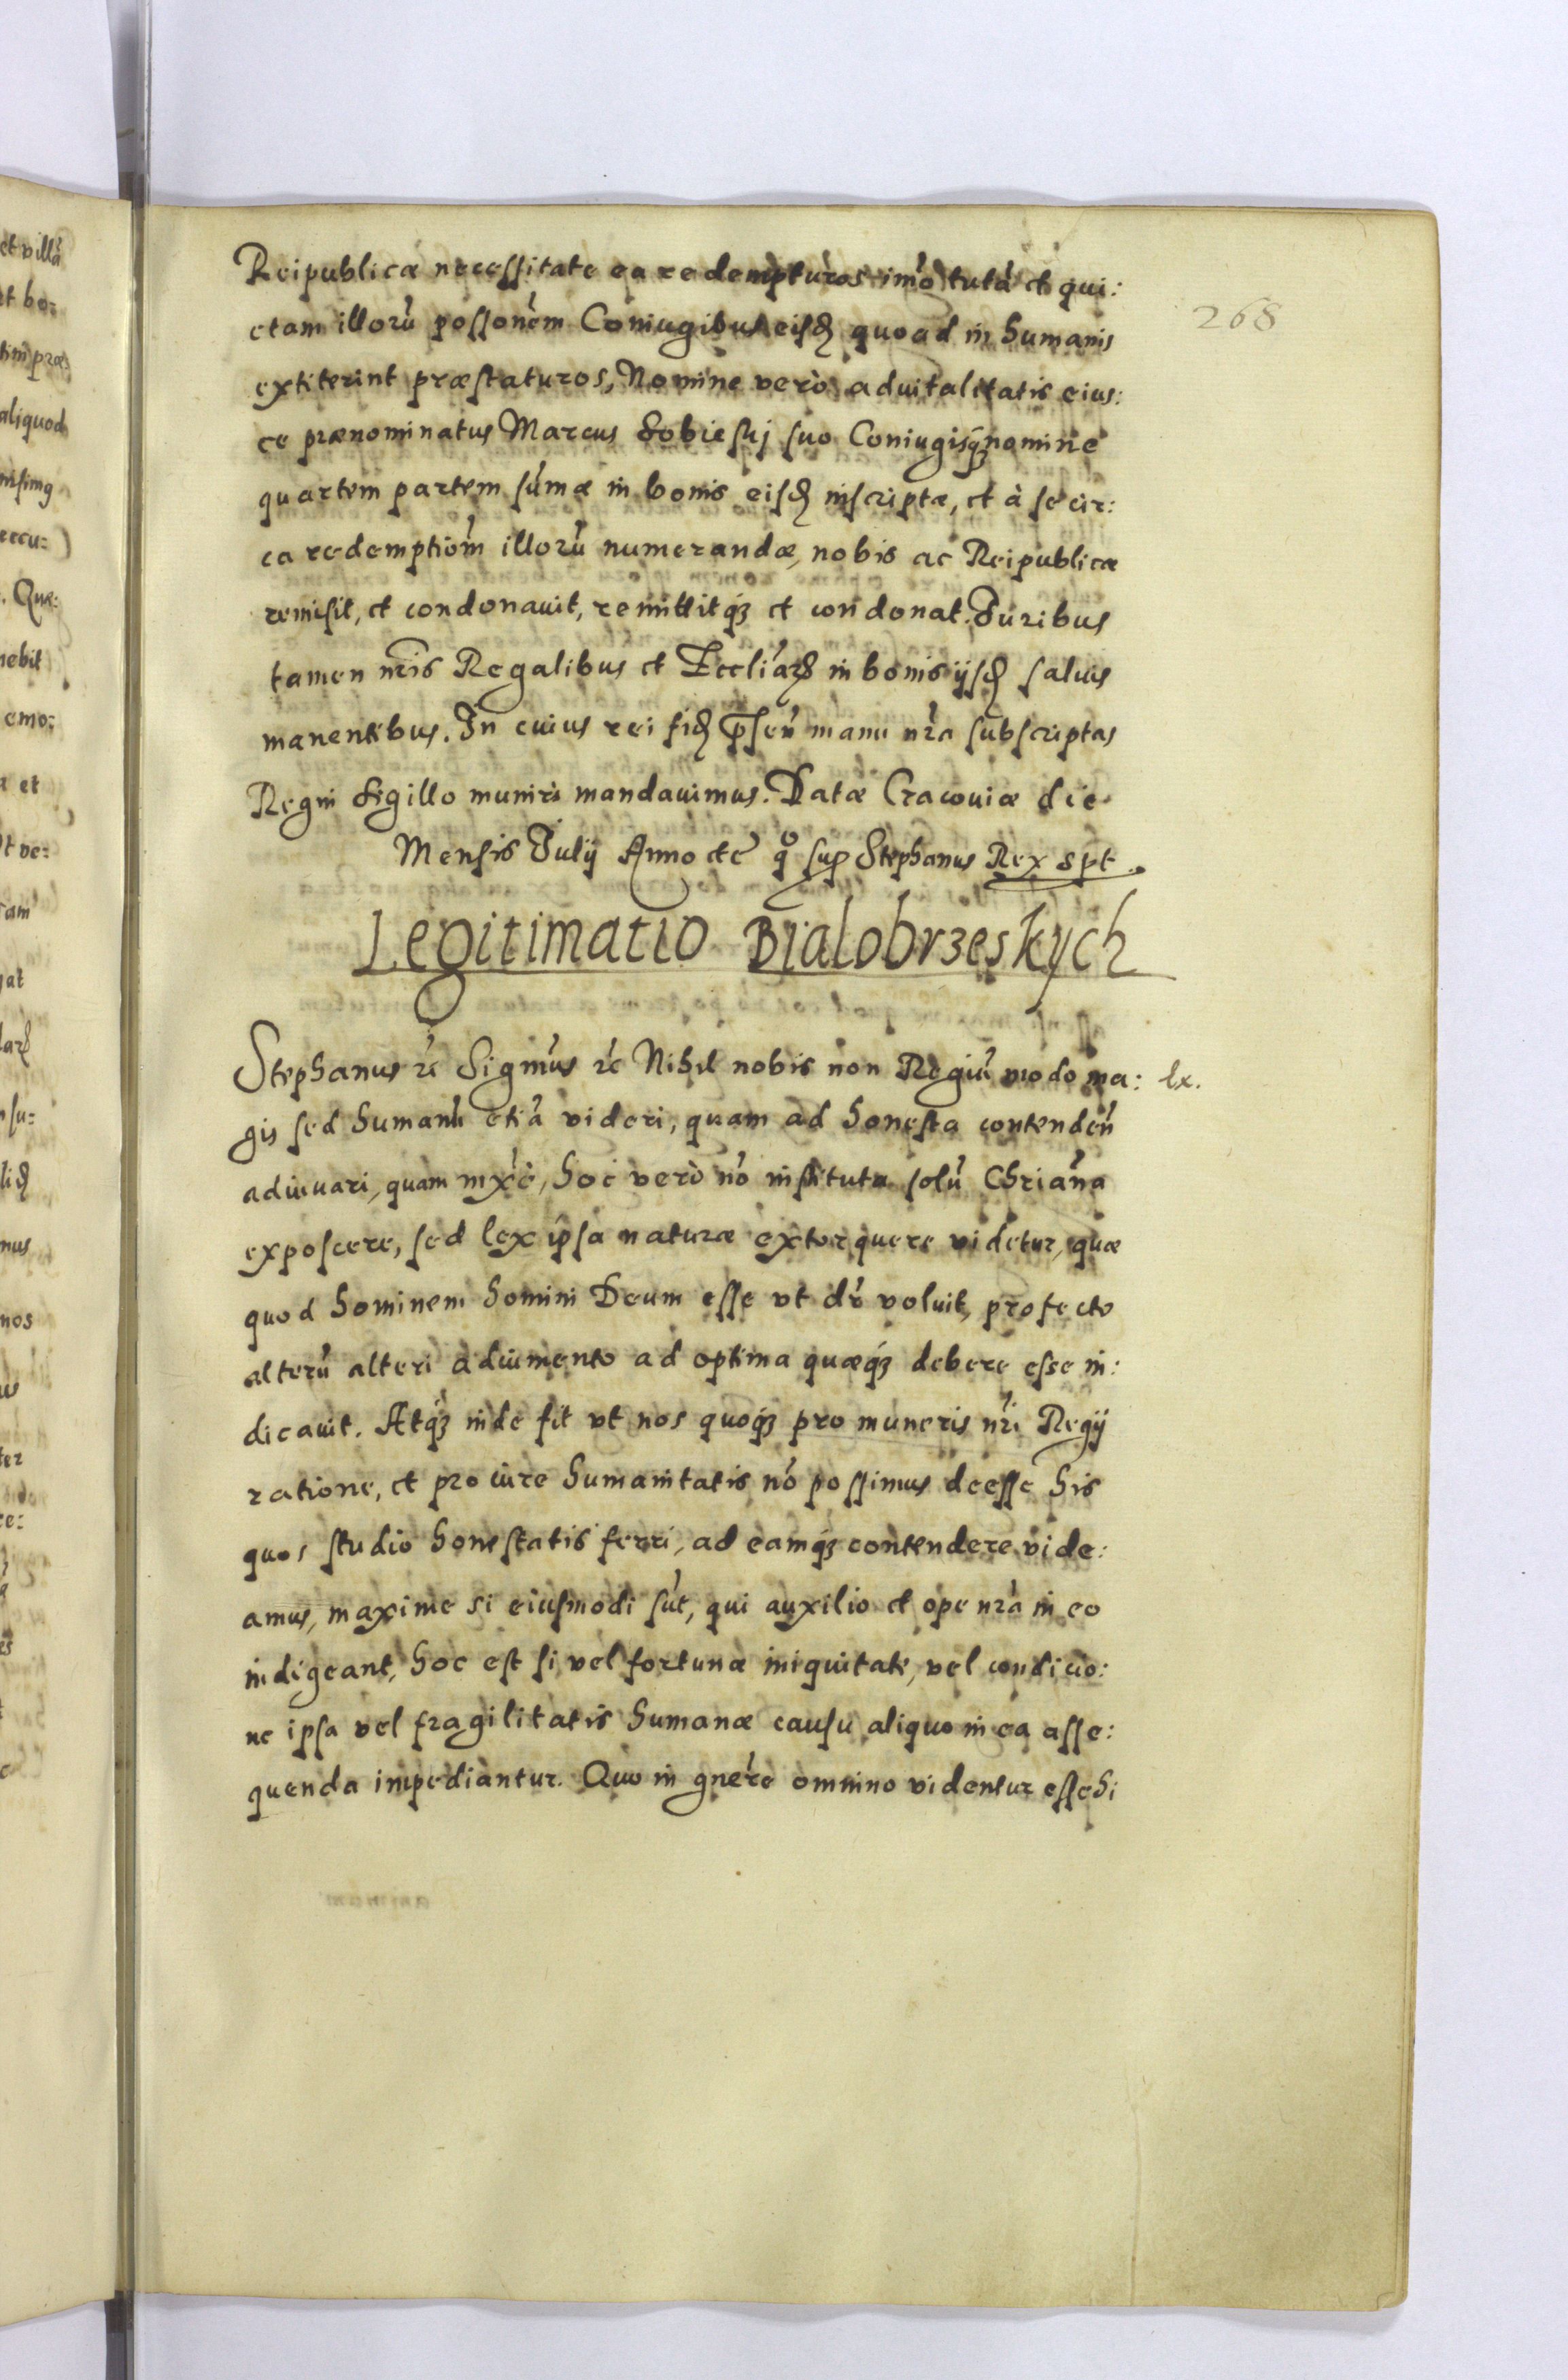 268
Reipublicæ necessitate ea redempturos imò tutã et qui:
etam illorũ possonem Coniugibus eisd quoad in humanis
extiterint præstaturos, Nomine verò aduitalitatis eius:
ce prænominatus Marcus Sobieskj suo Coniugisq3 nomine
quartem partem sũmæ in bonis eisd inscriptæ, et à se cir:
ca redemptiom illorũ numerandæ, nobis ac Reipublicæ
remisit, et condonauit, remittitq3 et condonat. Juribus
tamen nris Regalibus et Eccliarz in bonis ijsd saluis
manentibus. In cuius rei fid psen manu nra subscriptas
Regni Sigillo muniri mandauimus. Datæ Cracouiæ die
Mensis Julij Anno etc qo sup Stephanus Rex spt.
Legitimatio Bialobrzeskych
Stephanus rc Signus rc Nihil nobis non Regiũ modo ma:
lx.
gis sed humanũ etiã videri, quam ad honesta contenden
adiuuari, quam mxe, hoc verò nõ instituta solũ Chriana
exposcere, sed lex ipsa naturæ extorquere videtur, quæ
quod hominem homini Deum esse vt dr voluit, profecto
alterũ alteri adiumento ad optima quæq3 debere esse in:
dicauit. Atq3 inde fit vt nos quoq3 pro muneris nri Regij
ratione, et pro iure humanitatis nõ possimus deesse his
quos studio honestatis ferri, ad eamq3 contendere vide:
amus, maxime si eiusmodi sũt, qui auxilio et ope nra in eo
indigeant, hoc est si vel fortunæ iniquitate, vel condicio:
ne ipsa vel fragilitatis humanæ causu aliquo in ea asse:
quenda impediantur. Quo in gnere omnino videntur esse hi